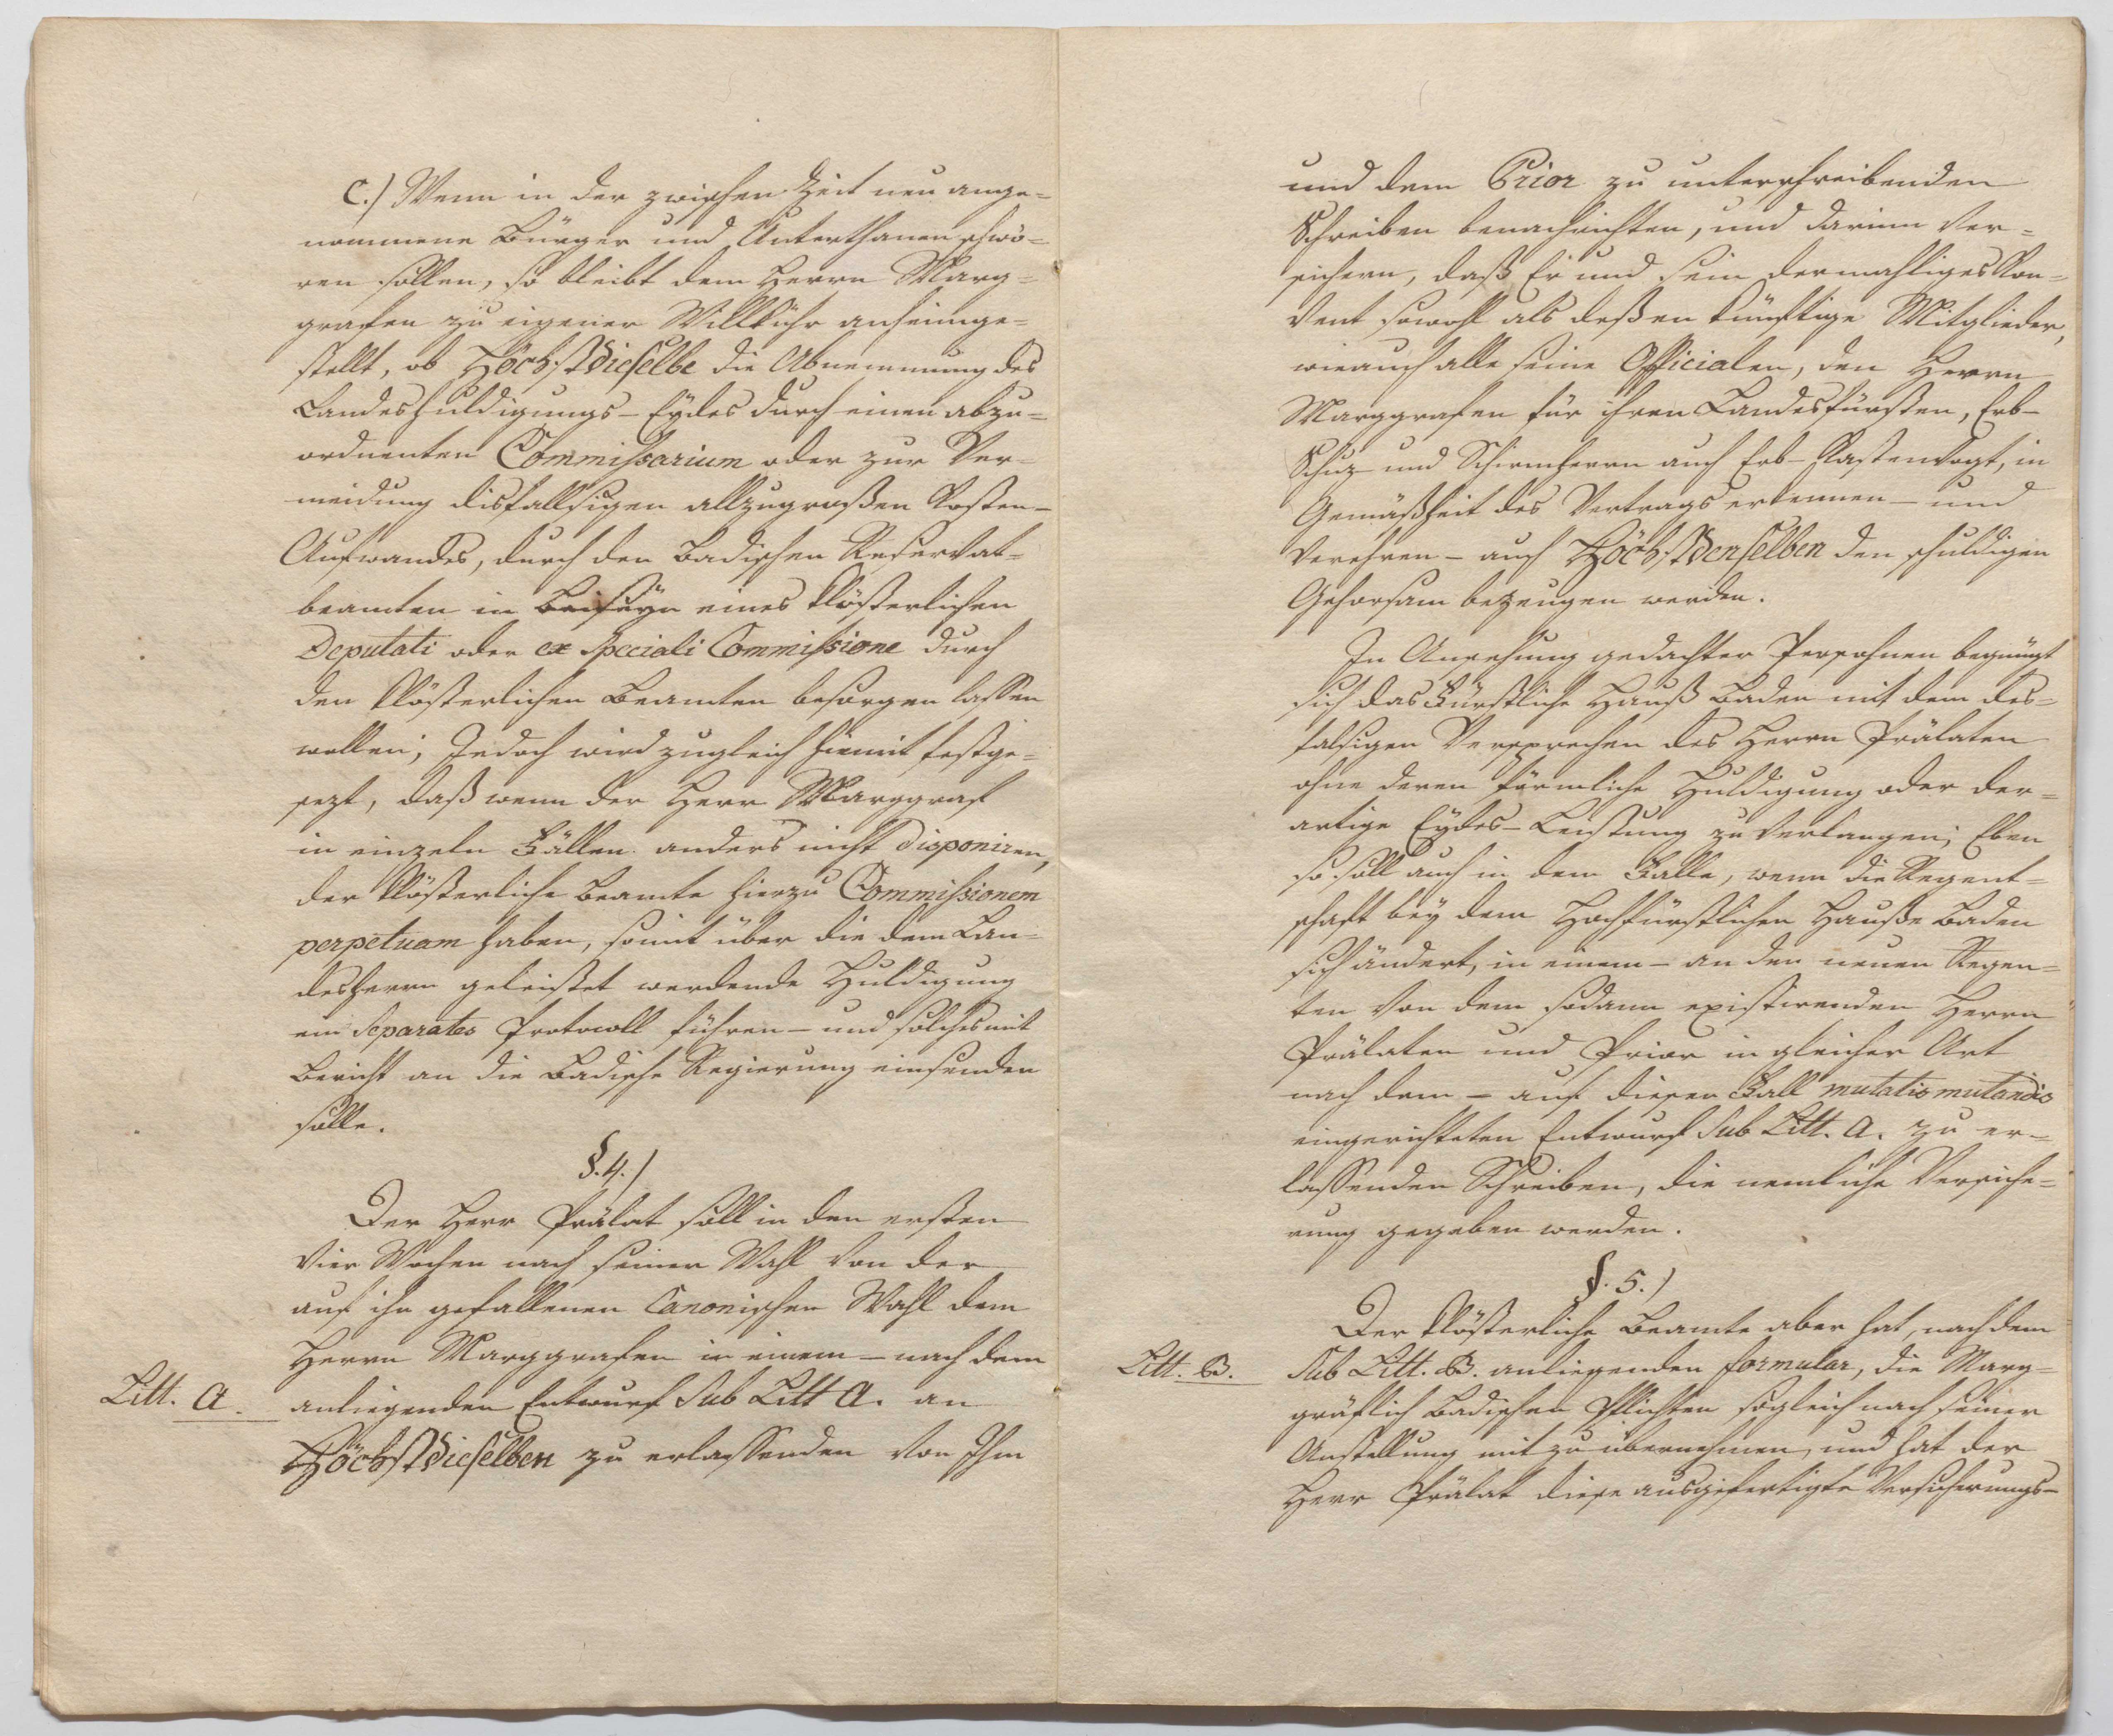 C.) Wenn in der zwischen Zeit neu ange=
nommene Bürger und Unterthanen schwö=
ren sollen, so bleibt dem Herrn Marg=
grafen zu eigener Willkühr anheimge=
stellt, ob Höchstdieselbe die Abnemmung des
Landeshuldigungs-Eydes durch einen abzu=
ordnenten Commissarium oder zur Ver=
meidung disfallsigen allzugroßen Kosten-
Aufwandes, durch den Badischen Reservat=
beamten in Beiseyn eines klösterlichen
Deputati oder ex speciali Commissione durch
den klösterlichen Beamten besorgen lassen
wollen; Jedoch wird zugleich hiemit festge=
sezt, daß wenn der Herr Marggraf
in einzeln Fällen anders nicht disponiren,
der klösterliche Beamte hierzu Commissionem
perpetuam haben, somit über die dem Lan=
desherrn geleistet werdende Huldigung
ein separates Protocoll führen - und solches mit
Bericht an die Badische Regierung einsenden
solle.
§. 4.)
Der Herr Prälat soll in den ersten
vier Wochen nach seiner Wahl von der
auf ihn gefallenen Canonischen Wahl dem
Herrn Marggrafen in einem - nach dem
Litt. A. anliegenden Entwurf Sub Litt A. an
Höchstdieselben zu erlassenden von Ihm
und dem Prior zu unterschreibenden
Schreiben benachrichten, und darinn ver=
sichern, daß Er und sein dermahliges Kon=
vent sowohl als deßen künftige Mitglieder,
wie auch alle seine Officialen, den Herrn
Marggrafen für ihren Landesfürsten, Erb-
Schuz- und Schirmherrn auch Erb-Kastenvogt, in
Gemäßheit des Vertrags erkennen - und
verehren - auch Höchstdenselben den schuldigen
Gehorsam bezeugen werden.
In Ansehung gedachter Persohnen begnügt
sich das Fürstliche Hauß Baden mit dem des=
falsigen Versprechen des Herrn Prälaten
ohne deren förmliche Huldigung oder der=
artige Eydes-Leistung zu verlangen; Eben
so soll auch in dem Falle, wenn die Regent=
schaft bey dem Hochfürstlichen Hauße Baden
sich ändert, in einem - an den neuen Regen=
ten von dem sodann existirenden Herrn
Prälaten und Prior in gleicher Art
nach dem - auf diesen Fall mutatis mutandis
eingerichteten Entwurf Sub Litt. A. zu er=
lassenden Schreiben, die nemliche Versiche=
rung gegeben werden.
§. 5.)
Der klösterliche Beamte aber hat, nach dem
Litt. B. Sub Litt. B. anliegenden formular, die Marg=
gräflich Badischen Pflichten sogleich nach seiner
Anstellung mit zu übernehmen, und hat der
Herr Prälat diese ausgefertigte Versicherungs-